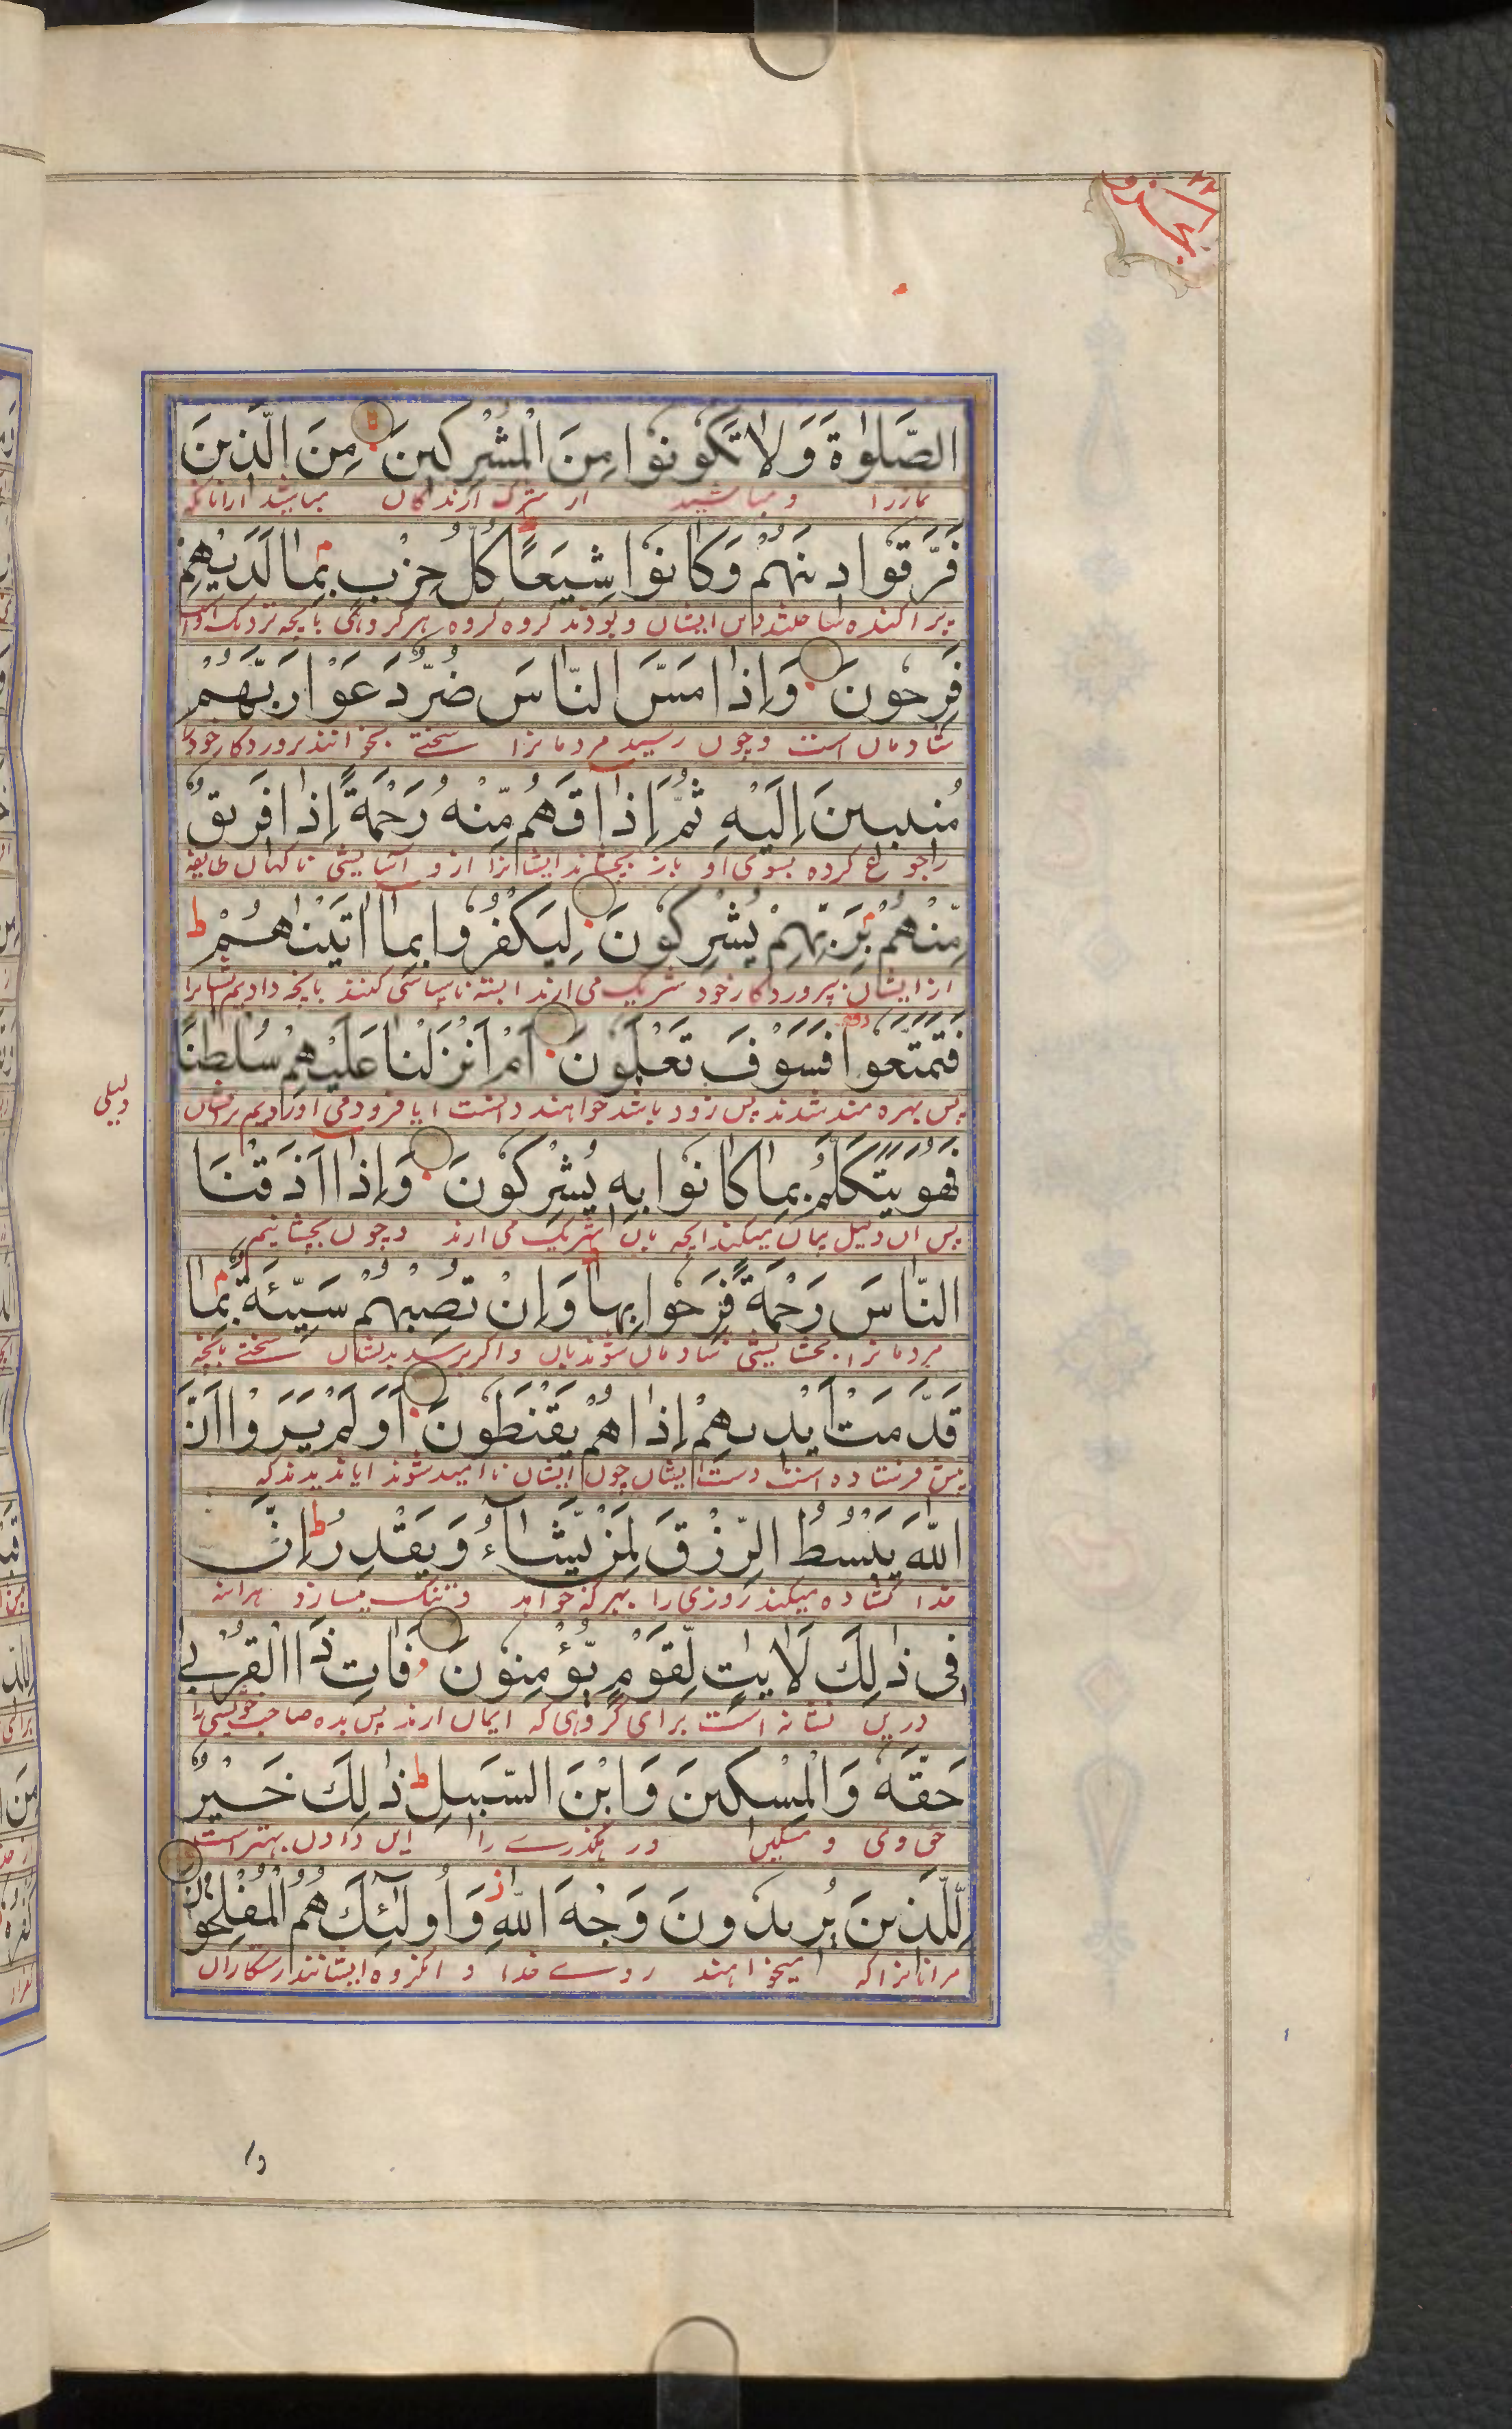 الصَّلٰوةَ وَلَا تَكُونُوا مِنَ الْمُشْرِكِينَ مِنَ الَّذِينَ
نمازرا و مباشید از شرک ارندگان مباشید ازانانکه
فَرَّقُوا دِينَهُمْ وَكَانُوا شِيَعًا كُلُّ حِزْبٍ بِمَا لَدَيْهِمْ
پراکنده ساختند دین ایشان و بودند گروه گروه هر گروهی بانچه نزدیک
فَرِحُونَ وَإِذَا مَسَّ النَّاسَ ضُرٌّ دَعَوْا رَبَّهُمْ
شادمان است و چون رسید مردمانرا سختے بخوانند پروردکار خود
مُنِيبِينَ إِلَيْهِ ثُمَّ إِذَا أَذَاقَهُمْ مِنْهُ رَحْمَةً إِذَا فَرِيقٌ
کرده بسوی او باز بچشاند ایشانرا ازو اسایشی ناکهان طایفه
مِنْهُمْ بِرَبِّهِمْ يُشْرِكُونَ لِيَكْفُرُوا بِمَا آتَيْنَاهُمْ ط
از ایشان بپروردکار خود شریک می ارند البته ناسپاسی کنند بانچه دادیم
فَتَمَتَّعُوا وقفه فَسَوْفَ تَعْلَمُونَ أَمْ أَنْزَلْنَا عَلَيْهِمْ سُلْطٰنًا
پس بهره مند شدند پس زود باشد خواهند دانست ایا فرود می اوردیم برایشان
دلیلی
فَهُوَ يَتَكَلَّمُ بِمَا كَانُوا بِهِ يُشْرِكُونَ وَإِذَا أَذَقْنَا
پس ان دلیل بیان میکند انچه بان شریک می ارند و چون بچشانیم
النَّاسَ رَحْمَةً فَرِحُوا بِهَا وَإِنْ تُصِبْهُمْ سَيِّئَةٌ بِمَا
مردمانرا بخشایشی شادمان شوند بان و اکر برسد بدیشان سختے بانچه
قَدَّمَتْ أَيْدِيهِمْ إِذَا هُمْ يَقْنَطُونَ أَوَلَمْ يَرَوْا أَنَّ
پیش فرستاده است دست ایشان چون ایشان ناامید شوند ایا ندیدند که
اللّٰهَ يَبْسُطُ الرِّزْقَ لِمَنْ يَشَاءُ وَيَقْدِرُ ط إِنَّ
خدا کشاده میکند روزی را بهر که خواهد و تنک میسازد هراینه
فِي ذٰلِكَ لَاٰيٰتٍ لِقَوْمٍ يُؤْمِنُونَ فَاٰتِ ذَا الْقُرْبٰى
درین نشانه است برای گروهی که ایمان ارند پس بده صاحب خویشی را
حَقَّهُ وَالْمِسْكِينَ وَابْنَ السَّبِيلِ ط ذٰلِكَ خَيْرٌ
حق وی و مسکین را و رهگذرے را این دادن بهتر است
لِلَّذِينَ يُرِيدُونَ وَجْهَ اللّٰهِ وَأُولٰئِكَ هُمُ الْمُفْلِحُونَ
مرانانرا که میخواهند روے خدا و انکروه ایشانند رستکاران